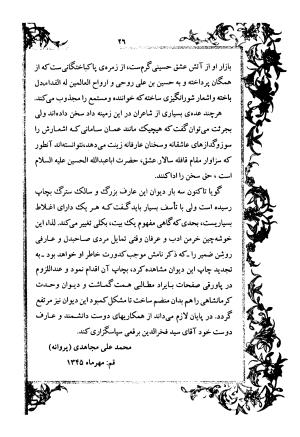 ۲۹
بازار او از آتش عشق حسینی گرم‌ست، از زمره‌ی پاکباختگانی‌ست که از
همگان پرداخته و به حسین بن علی روحی و ارواح العالمین له الفداء، دل
باخته و اشعار شورانگیزی ساخته که خواننده و مستمع را مجذوب می‌کند.
هرچند عده‌ی بسیاری از شاعران در این زمینه داد سخن داده‌اند ولی
بجرئت می‌توان گفت که هیچیک مانند عمان سامانی که اشعارش را
سوزوگدازهای عاشقانه و سخنان عارفانه زینت می‌دهد، نتوانسته‌اند، آنطور
که سزاوار مقام قافله سالار عشق، حضرت اباعبدالله الحسین علیه السلام
است، حق سخن را ادا کنند.
گویا تاکنون سه بار دیوان این عارف بزرگ و سالک سترگ بچاپ
رسیده است ولی با تأسف بسیار باید گفت که هر یک دارای اغلاط
بسیاریست، بحدی که گاهی مفهوم یک بیت، بکلی تغییر می‌کند. لذا، این
خوشه‌چین خرمن ادب و عرفان وقتی تمایل مردی صاحبدل و عارفی
روشن ضمیر را ـ که ذکر نامش موجب کدورت خاطر او خواهد بود ـ به
تجدید چاپ این دیوان مشاهده کرد، بچاپ آن اقدام نمود و عنداللزوم
در پاورقی صفحات بایراد مطالبی همت گماشت و دیوان وحدت
کرمانشاهی را هم بدان منضم ساخت تا مشکل کمبود این دیوان نیز مرتفع
گردد. در پایان لازم می‌داند از همکاریهای دوست دانشمند و عارف
دوست خود آقای سید فخرالدین برقعی سپاسگزاری کند.
محمد علی مجاهدی (پروانه)
قم: مهرماه ۱۳۴۵